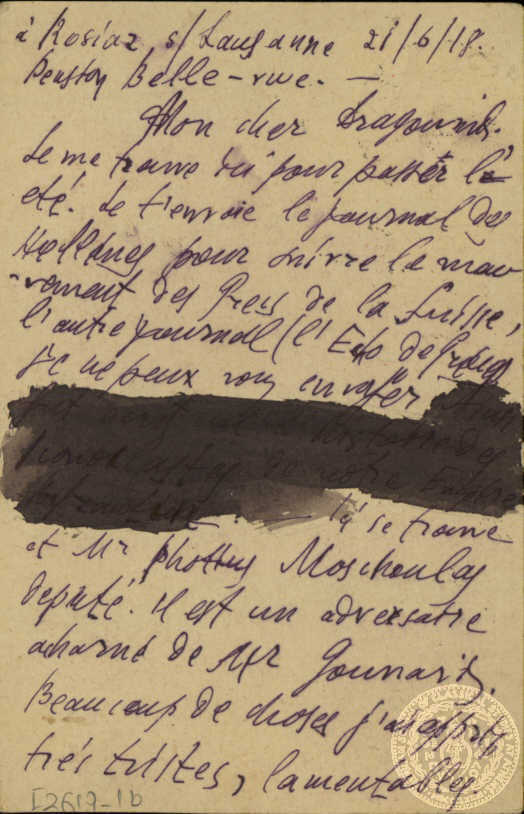 à Rosiaz s/Lausanne 21/6/18.
Pension Belle-vue. —
Mon cher Dragoumis.
Je me trouve ici pour passer l'
été. Je t'envoie le journal des
Hellènes pour suivre le mou-
vement des Grecs de la Suisse,
l'autre journal (l'Echo de Grèce)
je ne peux vous envoyer
de notre Empire
Ici se trouve
et Mr Photius Moschoulas
député. Il est un adversaire
acharné de Mr Gounaris.
Beaucoup de choses j'ai appris
très tristes, lamentables
I2619-1b